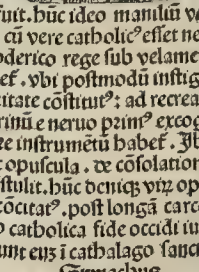 fuit. hūc ideo manilīū v
cū vere catholicꝰ eſſet ne
oderico rege ſub velame
et. vbi poſtmodū inſtig
citate cōſtitutꝰ: ad recrea
rinū e neruo primꝰ excog
re inſtrumētū habet. Ib
t opuſcula. de cōſolation
ſtulit. hūc deniqꝫ virū op
cōcitatꝰ. poſt longā carce
o catholica fide occidi iu
unt euꝫ ī cathalago ſanc